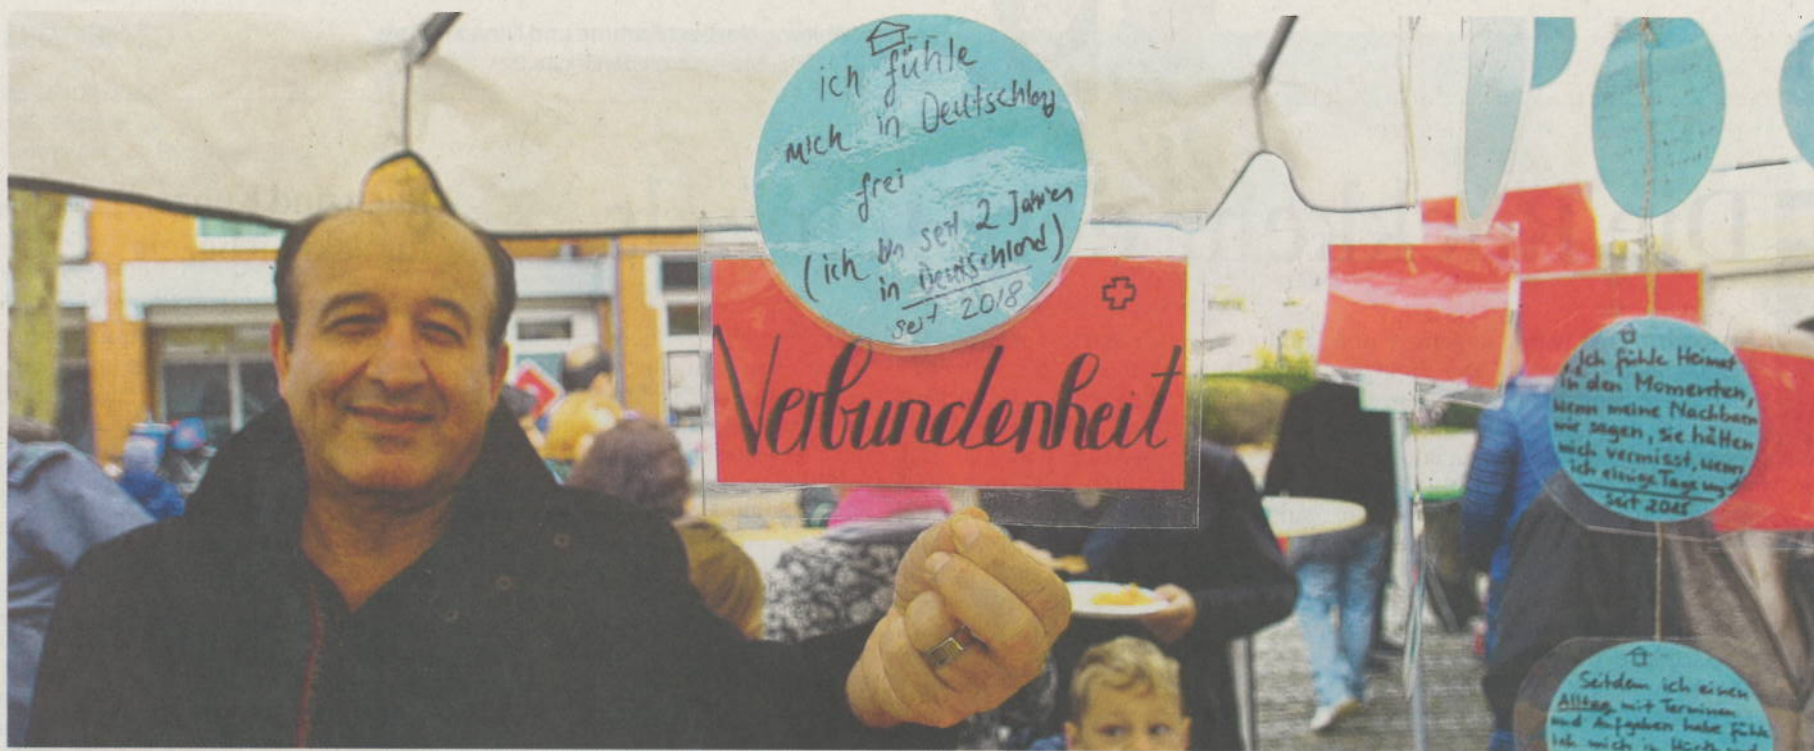 ich fühle
mich in Deutschland
frei
(ich bin seit 2 Jahren
in Deutschland)
seit 2018
Verbundenheit
Ich fühle Heimat
in den Momenten,
wenn meine Nachbarn
mir sagen, sie hätten
mich vermisst, wenn
ich einige Tage weg
seit 2015
Seitdem ich einen
Alltag mit Terminen
und Aufgaben habe fühle
ich mich